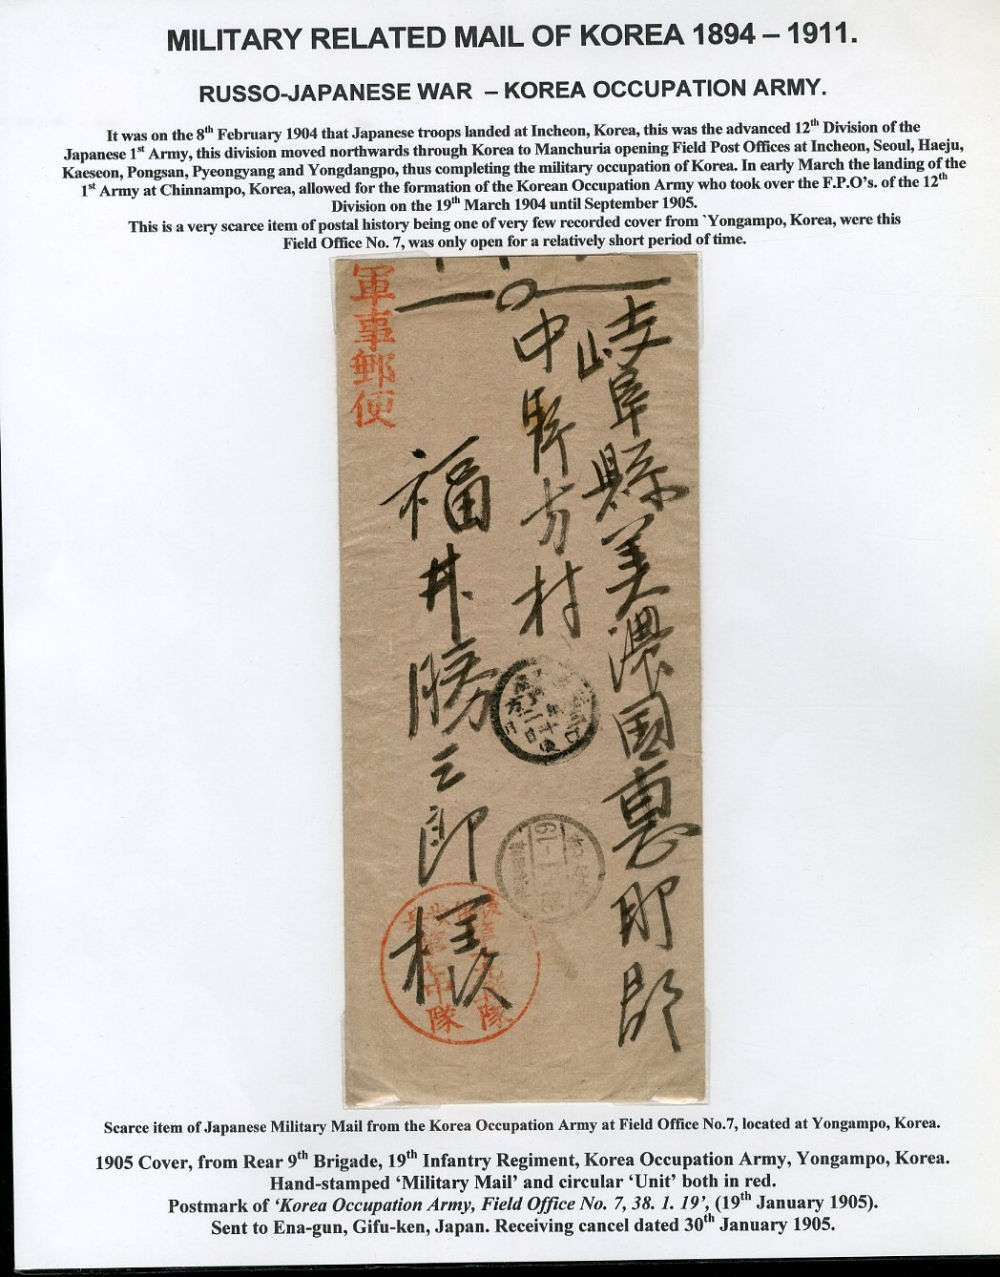 MILITARY RELATED MAIL OF KOREA 1894 – 1911.
RUSSO-JAPANESE WAR – KOREA OCCUPATION ARMY.
It was on the 8th February 1904 that Japanese troops landed at Incheon, Korea, this was the advanced 12th Division of the
Japanese 1st Army, this division moved northwards through Korea to Manchuria opening Field Post Offices at Incheon, Seoul, Haeju,
Kaeseon, Pongsan, Pyeongyang and Yongdangpo, thus completing the military occupation of Korea. In early March the landing of the
1st Army at Chinnampo, Korea, allowed for the formation of the Korean Occupation Army who took over the F.P.O's. of the 12th
Division on the 19th March 1904 until September 1905.
This is a very scarce item of postal history being one of very few recorded cover from `Yongampo, Korea, were this
Field Office No. 7, was only open for a relatively short period of time.
軍事郵便
岐阜縣美濃國惠那郡
中野方村
福井勝三郎様
Scarce item of Japanese Military Mail from the Korea Occupation Army at Field Office No.7, located at Yongampo, Korea.
1905 Cover, from Rear 9th Brigade, 19th Infantry Regiment, Korea Occupation Army, Yongampo, Korea.
Hand-stamped 'Military Mail' and circular 'Unit' both in red.
Postmark of 'Korea Occupation Army, Field Office No. 7, 38. 1. 19', (19th January 1905).
Sent to Ena-gun, Gifu-ken, Japan. Receiving cancel dated 30th January 1905.